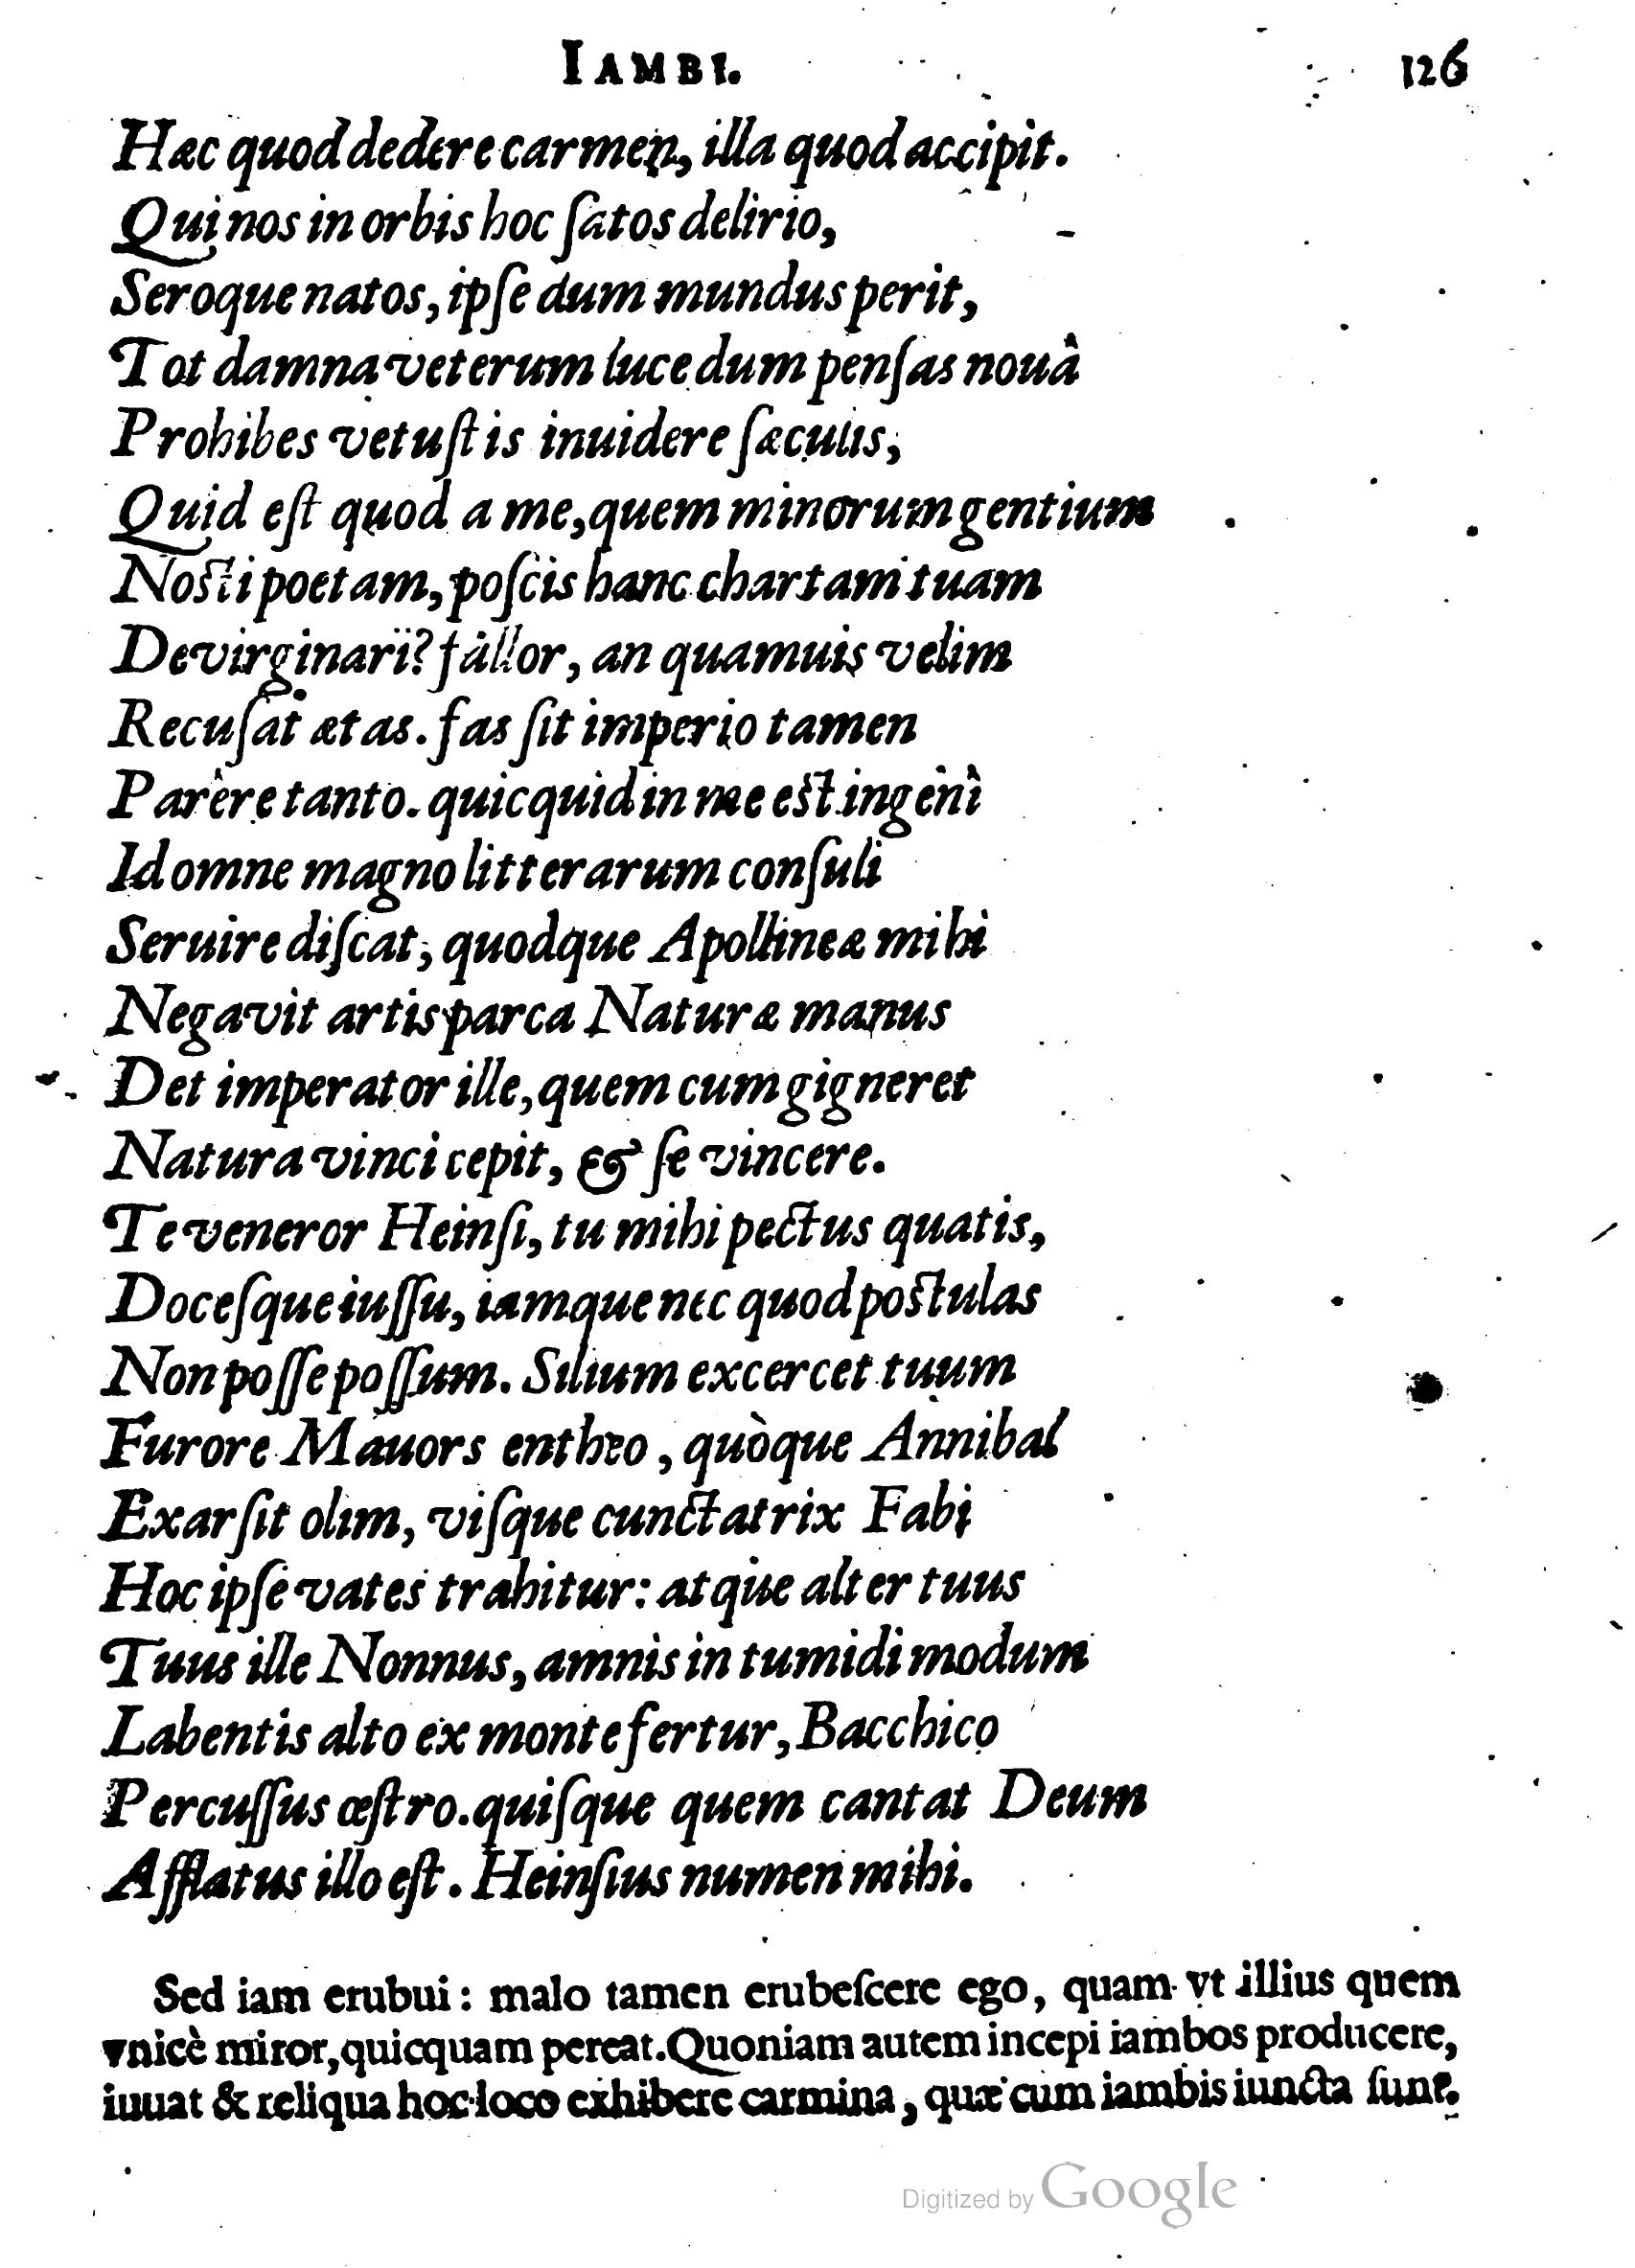 IAMBI. 126
Hæc quod dedere carmen, illa quod accipit.
Qui nos in orbis hoc ſatos delirio,
Seroque natos, ipſe dum mundus perit,
Tot damna veterum luce dum penſas nouâ
Prohibes vetuſtis inuidere ſæculis,
Quid eſt quod a me, quem minorum gentium
Noſti poetam, poſcis hanc chartam tuam
Devirginari? fallor, an quamuis velim
Recuſat ætas. fas ſit imperio tamen
Parêre tanto. quicquid in me eſt ingenî
Id omne magno litterarum conſuli
Seruire diſcat, quodque Apollineæ mihi
Negavit artis parca Naturæ manus
Det imperator ille, quem cum gigneret
Natura vinci cepit, & ſe vincere.
Te veneror Heinſi, tu mihi pectus quatis,
Doceſque iuſſu, iamque nec quod poſtulas
Non poſſe poſſum. Silium excercet tuum
Furore Mauors entheo, quòque Annibal
Exarſit olim, viſque cunctatrix Fabi
Hoc ipſe vates trahitur: atque alter tuus
Tuus ille Nonnus, amnis in tumidi modum
Labentis alto ex monte fertur, Bacchico
Percuſſus œſtro. quiſque quem cantat Deum
Afflatus illo eſt. Heinſius numen mihi.
Sed iam erubui: malo tamen erubeſcere ego, quam vt illius quem
vnicè miror, quicquam pereat. Quoniam autem incepi iambos producere,
iuuat & reliqua hoc loco exhibere carmina, quæ cum iambis iuncta ſunt.
Digitized by Google